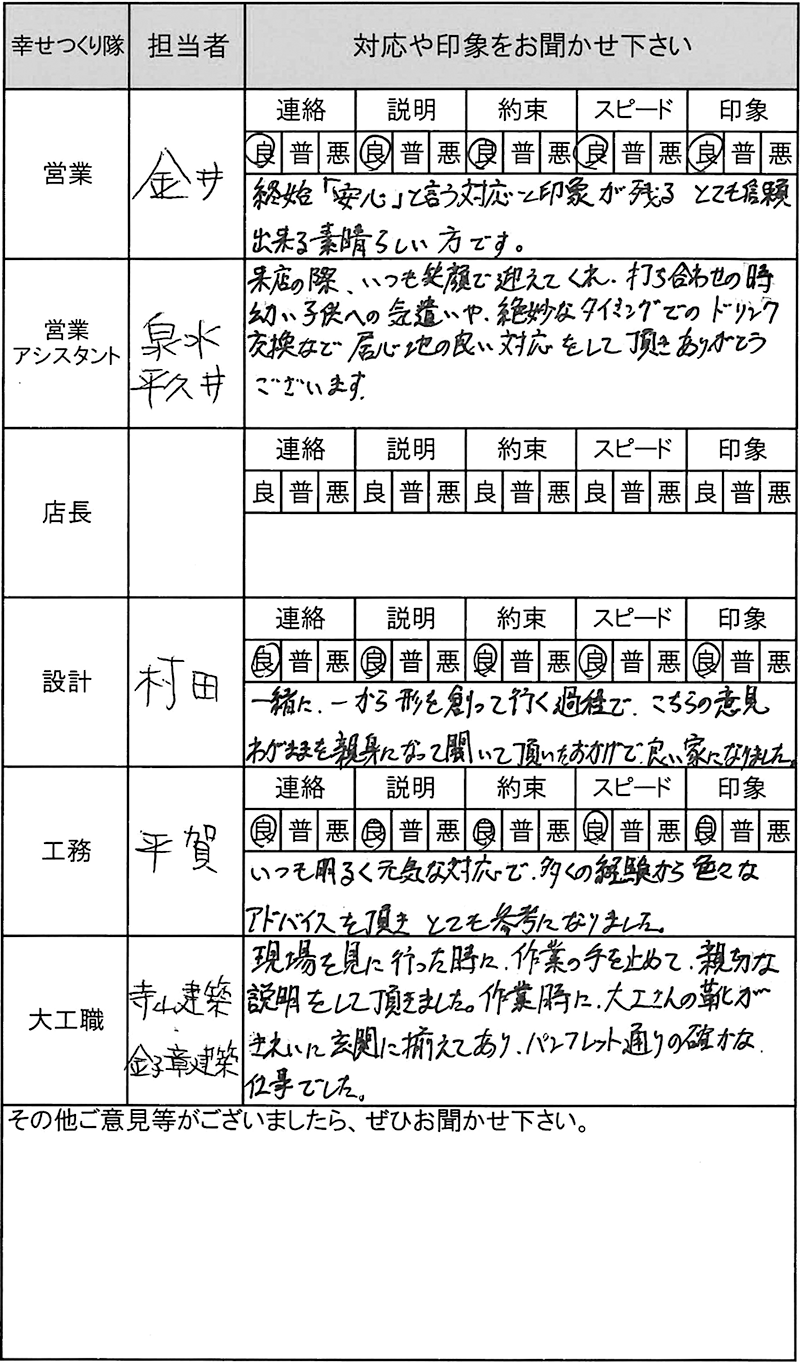 幸せつくり隊 担当者 対応や印象をお聞かせ下さい
営業 金井
連絡 説明 約束 スピード 印象
良 普 悪 良 普 悪 良 普 悪 良 普 悪 良 普 悪
終始「安心」と言う対応と印象が残る とても信頼
出来る素晴らしい方です。
営業
アシスタント
泉水
平久井
来店の際、いつも笑顔で迎えてくれ、打ち合わせの時
幼い子供への気遣いや、絶妙なタイミングでのドリンク
交換など居心地の良い対応をして頂きありがとう
ございます。
店長
連絡 説明 約束 スピード 印象
良 普 悪 良 普 悪 良 普 悪 良 普 悪 良 普 悪
設計 村田
連絡 説明 約束 スピード 印象
良 普 悪 良 普 悪 良 普 悪 良 普 悪 良 普 悪
一緒に、一から形を創って行く過程で、こちらの意見
わがままを親身になって聞いて頂いたおかげで、良い家になりました。
工務 平賀
連絡 説明 約束 スピード 印象
良 普 悪 良 普 悪 良 普 悪 良 普 悪 良 普 悪
いつも明るく元気な対応で、多くの経験から色々な
アドバイスを頂き とても参考になりました。
大工職
寺山建築
・
金子章建築
現場を見に行った時に、作業の手を止めて、親切な
説明をして頂きました。作業時に、大工さんの靴が
きれいに玄関に揃えてあり、パンフレット通りの確かな
仕事でした。
その他ご意見等がございましたら、ぜひお聞かせ下さい。